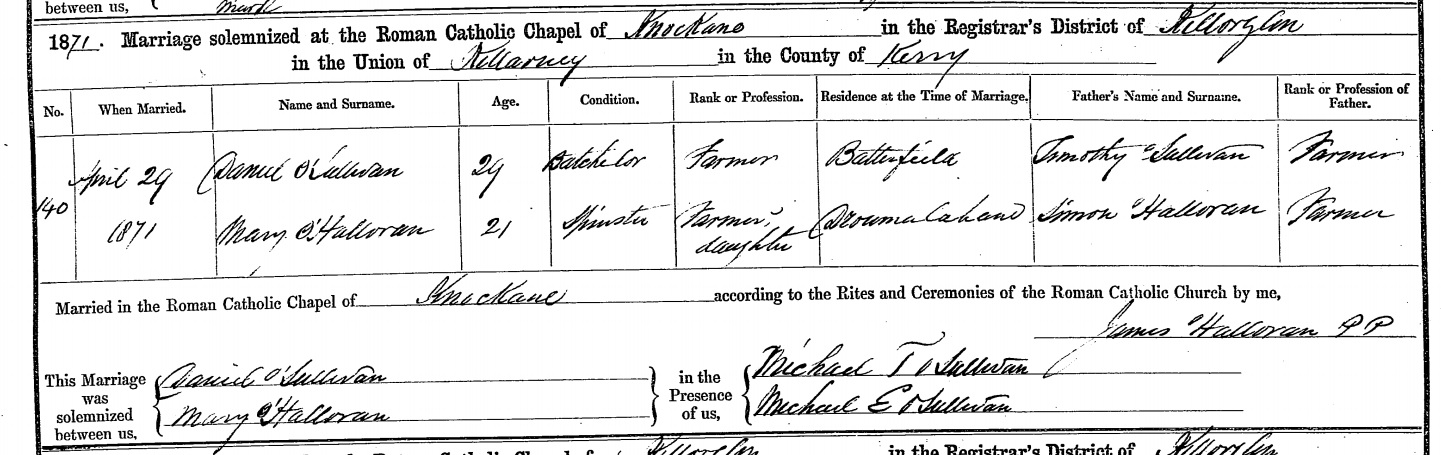 between us,
1871. Marriage solemnized at the Roman Catholic Chapel of Knockane in the Registrar's District of Killorglin
in the Union of Killarney in the County of Kerry
No. When Married. Name and Surname. Age. Condition. Rank or Profession. Residence at the Time of Marriage. Father's Name and Surname. Rank or Profession of Father.
140 April 29 Daniel O'Sullivan 29 Batchelor Farmer Batterfield Timothy O'Sullivan Farmer
1871 Mary O'Halloran 21 Spinster Farmer's daughter Dromalahane Simon O'Halloran Farmer
Married in the Roman Catholic Chapel of Knockane according to the Rites and Ceremonies of the Roman Catholic Church by me,
James O'Halloran PP
This Marriage was solemnized between us, Daniel O'Sullivan
Mary O'Halloran
in the Presence of us, Michael T O Sullivan
Michael E O Sullivan
Killorglin in the Registrar's District of Killorglin